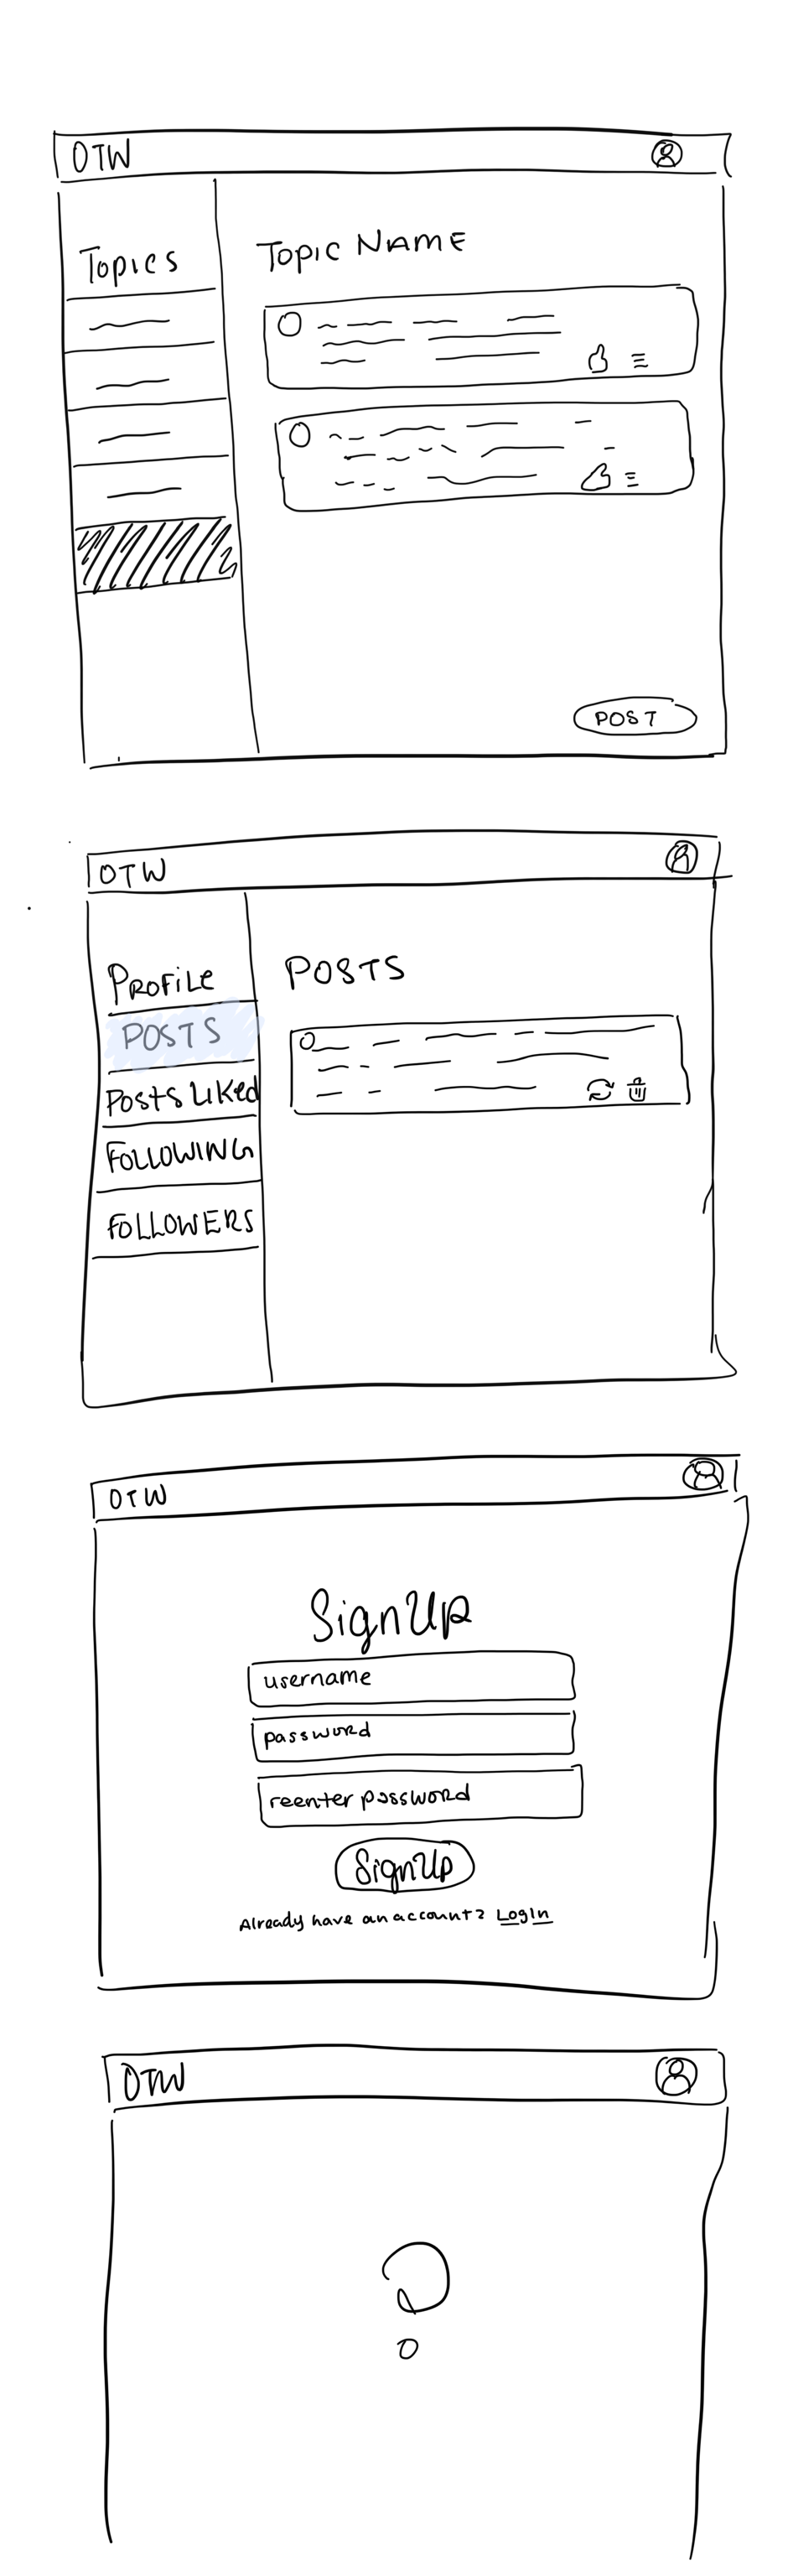 OTW
Topics
TOPIC NAME
POST
OTW
PROFILE
POSTS
POSTS
Posts Liked
FOLLOWING
FOLLOWERS
OTW
SignUp
username
password
reenter password
SignUp
Already have an account? LogIn
OTW
?